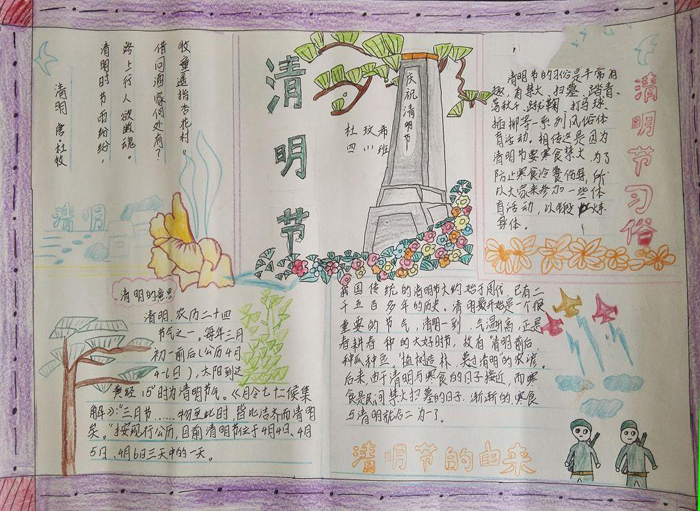 清明 唐 杜牧
清明时节雨纷纷,
路上行人欲断魂。
借问酒家何处有?
牧童遥指杏花村。
清明
清明节
庆祝清明节
杜玫希
四川班
清明节的习俗是丰富有
趣,有禁火、扫墓、踏青、
荡秋千、蹴鞠、打马球、
插柳等一系列风俗体
育活动。相传这是因为
清明节要寒食禁火,为了
防止寒食冷餐伤身,所
以大家来参加一些体
育活动,以锻炼
身体。
清明节习俗
清明的意思
清明,农历二十四
节气之一。每年三月
初一前后(公历4月
4—6日),太阳到达
黄经15°时为清明节气。《月令七十二候集
解》:“三月节……物至此时,皆以洁齐而清明
矣。”按现行公历,目前清明节位于4月4日、4月
5日、4月6日三天中的一天。
我国传统的清明节大约始于周代,已有二
千五百多年的历史。清明最开始是一个很
重要的节气,清明一到,气温升高,正是
春耕春种的大好时节,故有“清明前后,
种瓜种豆。”“植树造林,莫过清明”的农谚。
后来,由于清明与寒食的日子接近,而寒
食是民间禁火扫墓的日子,渐渐的,寒食
与清明就合二为一了。
清明节的由来